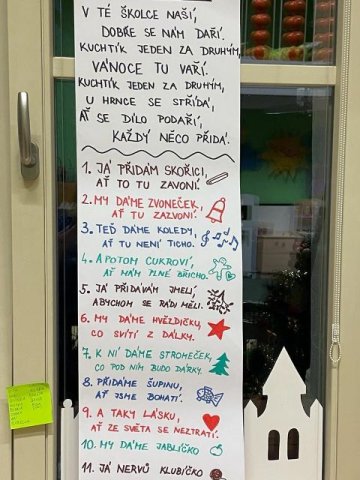 V TÉ ŠKOLCE NAŠÍ,
DOBŘE SE NÁM DAŘÍ.
KUCHTÍK JEDEN ZA DRUHÝM,
VÁNOCE TU VAŘÍ.
KUCHTÍK JEDEN ZA DRUHÝM,
U HRNCE SE STŘÍDÁ,
AŤ SE DÍLO PODAŘÍ,
KAŽDÝ NĚCO PŘIDÁ.
1. JÁ PŘIDÁM SKOŘICI,
AŤ TO TU ZAVONÍ.
2. MY DÁME ZVONEČEK,
AŤ TU ZAZVONÍ.
3. TEĎ DÁME KOLEDY,
AŤ TU NENÍ TICHO.
4. A POTOM CUKROVÍ,
AŤ MÁM PLNÉ BŘICHO.
5. JÁ PŘIDÁVÁM JMELÍ,
ABYCHOM SE RÁDI MĚLI.
6. MY DÁME HVĚZDIČKY,
CO SVÍTÍ Z DÁLKY.
7. K NÍ DÁME STROMEČEK,
CO POD NÍM BUDO DÁRKY.
8. PŘIDÁME ŠUPINU,
AŤ JSME BOHATÍ.
9. A TAKY LÁSKU,
AŤ ZE SVĚTA SE NEZTRATÍ.
10. MY DÁME JABLÍČKO
11. JÁ NERVŮ KLUBÍČKO